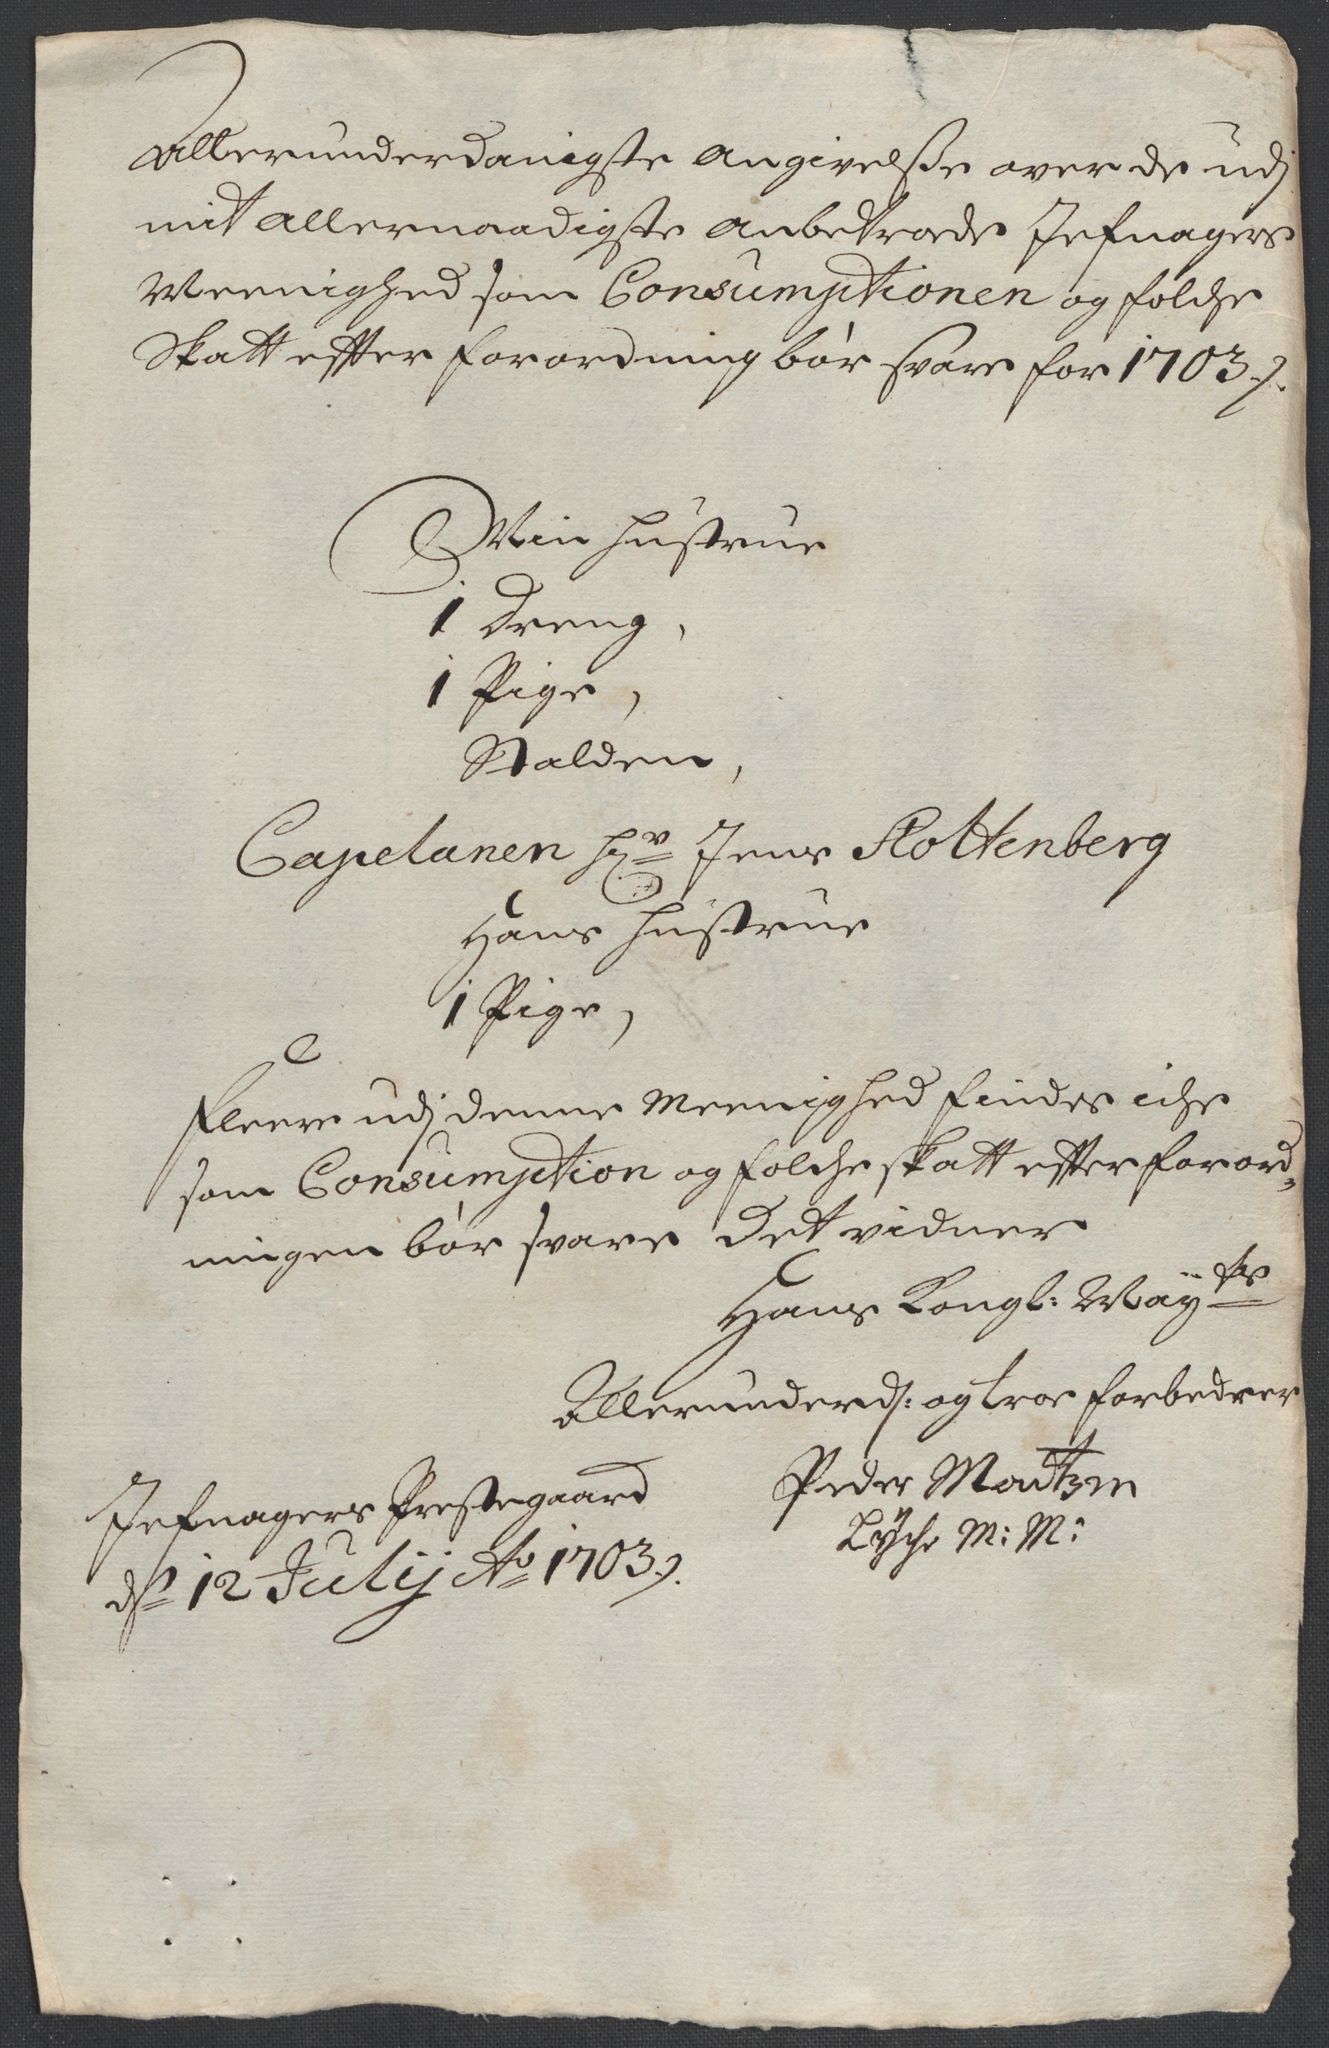 Allerunderdanigste Angivelse over de udj
mit allernaadigste anbetroede Jefnagers
Meenighed som Consumptionen og folche
Skatt effter forordning bör svare for 1703.
Min hustrue
1 Dreng,
1 Pige,
Stalden,
Capelanen hr Jens Rottenberg
Hans hustrue
1 Pige,
fleere udj denne Meenighed findes iche
som Consumption og folche skatt effter forord„
ningen bör svare det vidner
Hans Kongl: Mäytts
Allerunderd: og troe forbedrer
Peder Madtzen
Lÿche M: M:
Jefnagers Prestegaard
dn 12 Julij Ao 1703.